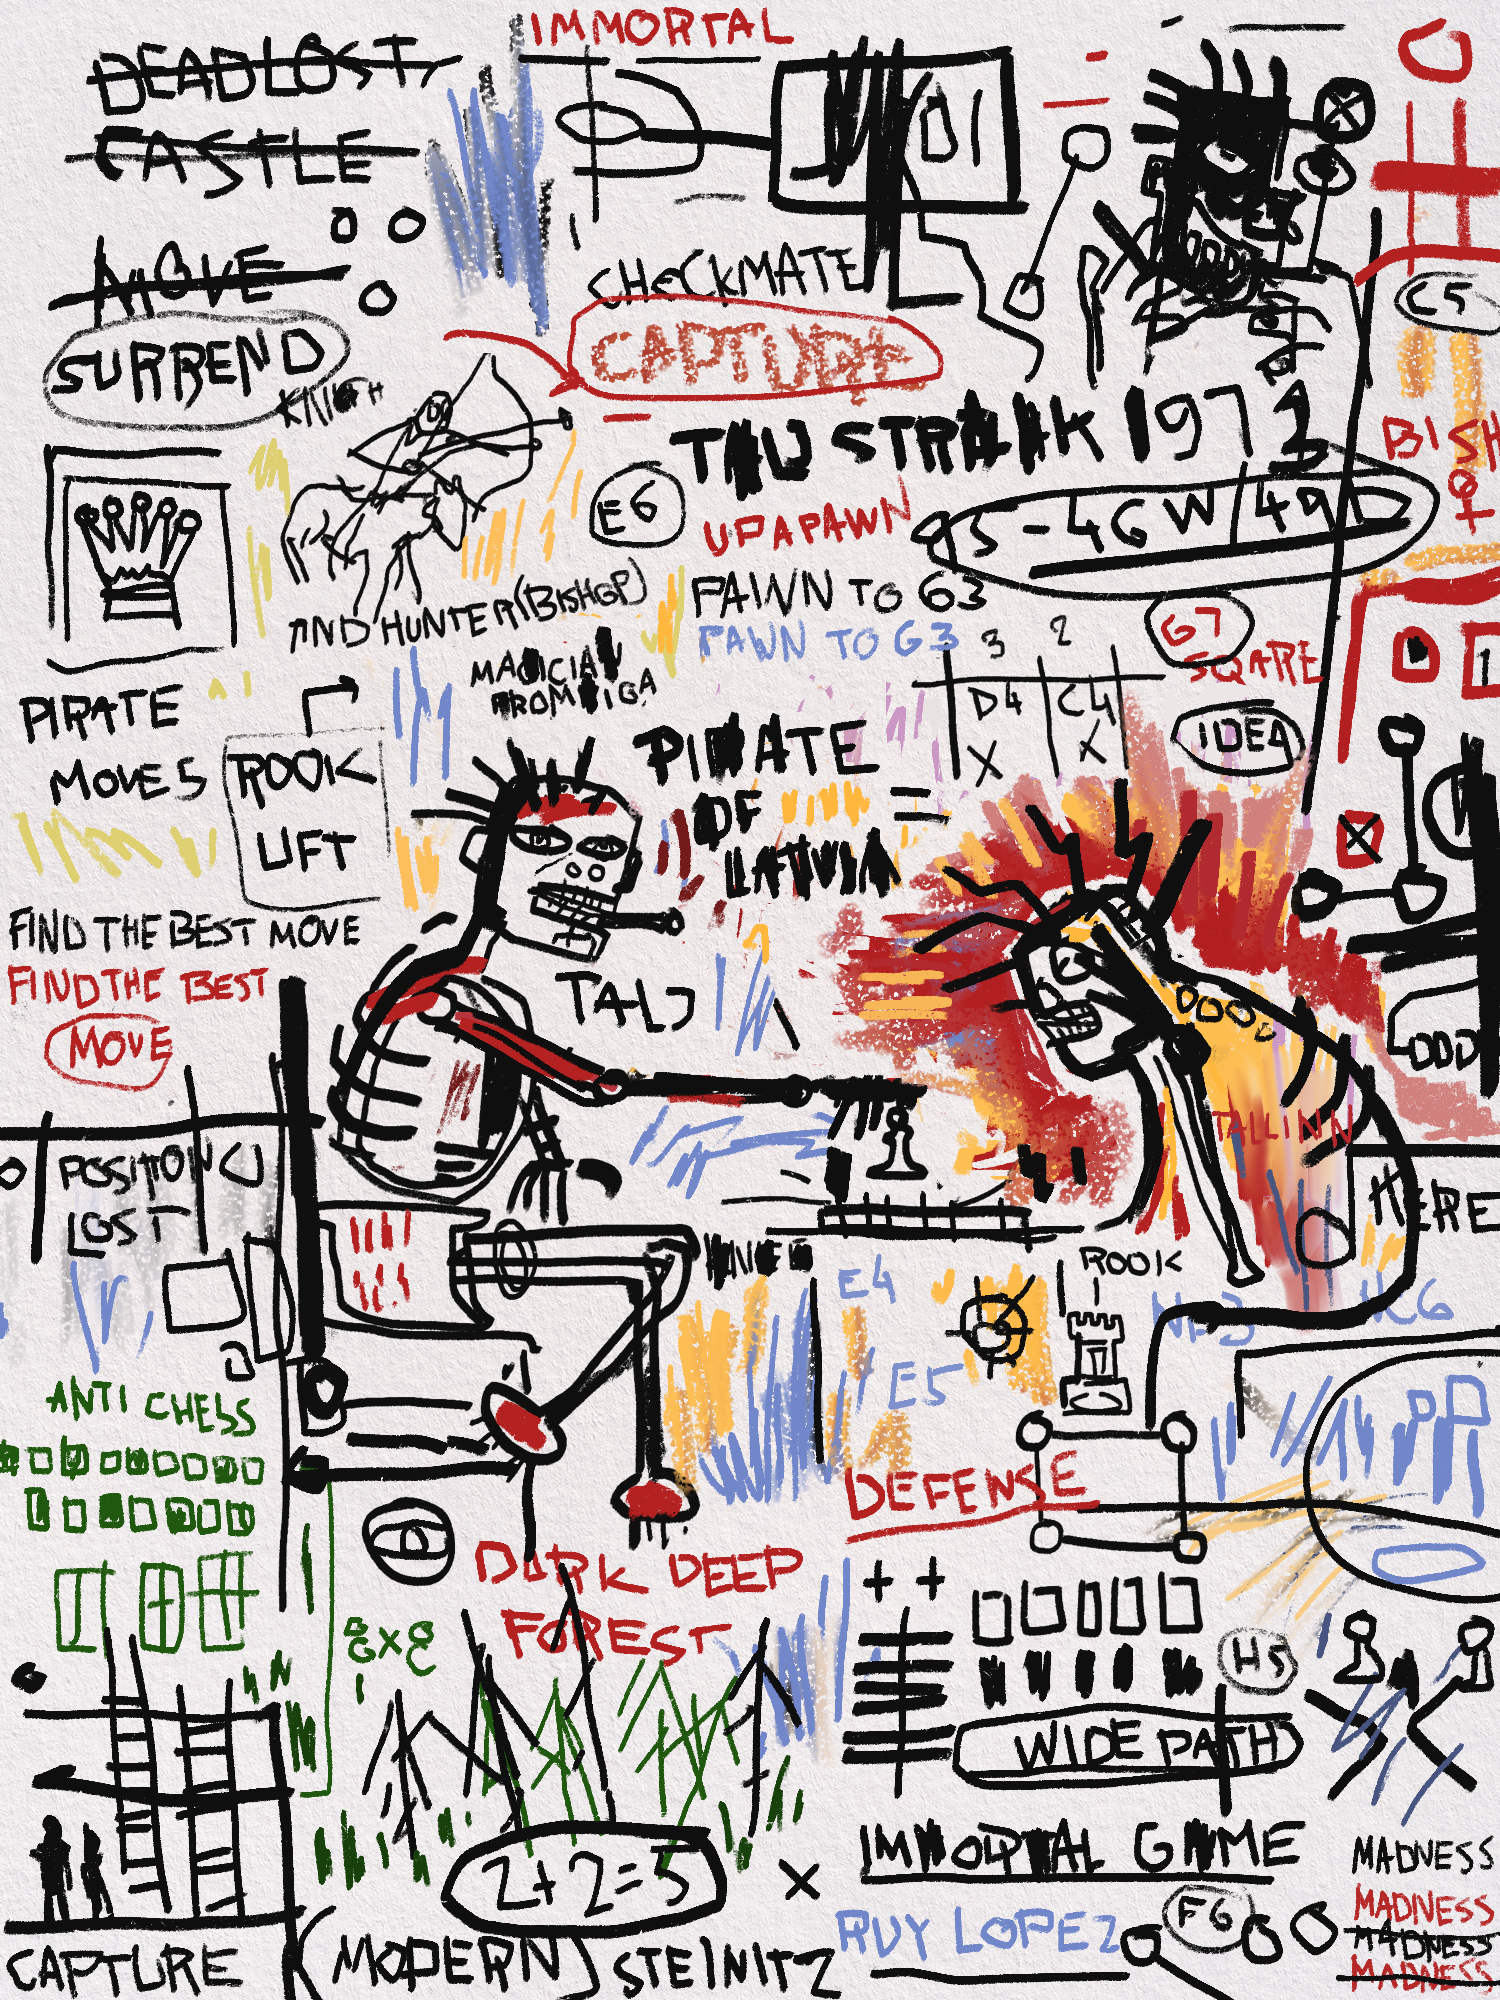 IMMORTAL
DEADLOST
CASTLE
MOVE
SURREND
KNIGHT
CHECKMATE
CAPTURE
C5
BISH
TAU STRAAK 1972
E6
UPAPAWN
PAWN TO G3
PAWN TO G3
3 2
D4 C4
X X
G7
SQARE
IDEA
AND HUNTER (BISHOP)
MAGICIAN
FROM RIGA
PIRATE
MOVES
ROOK
LIFT
PIRATE
OF
LATVIA
TAL
FIND THE BEST MOVE
FIND THE BEST
MOVE
TALLINN
POSITION
LOST
HERE
E4
E5
ROOK
NC6
ANTI CHESS
8x8
DARK DEEP
FOREST
DEFENSE
H5
WIDE PATH
2+2=5
IMMORTAL GAME
RUY LOPEZ
F6
MADNESS
MADNESS
MADNESS
MADNESS
CAPTURE
(MODERN) STEINITZ